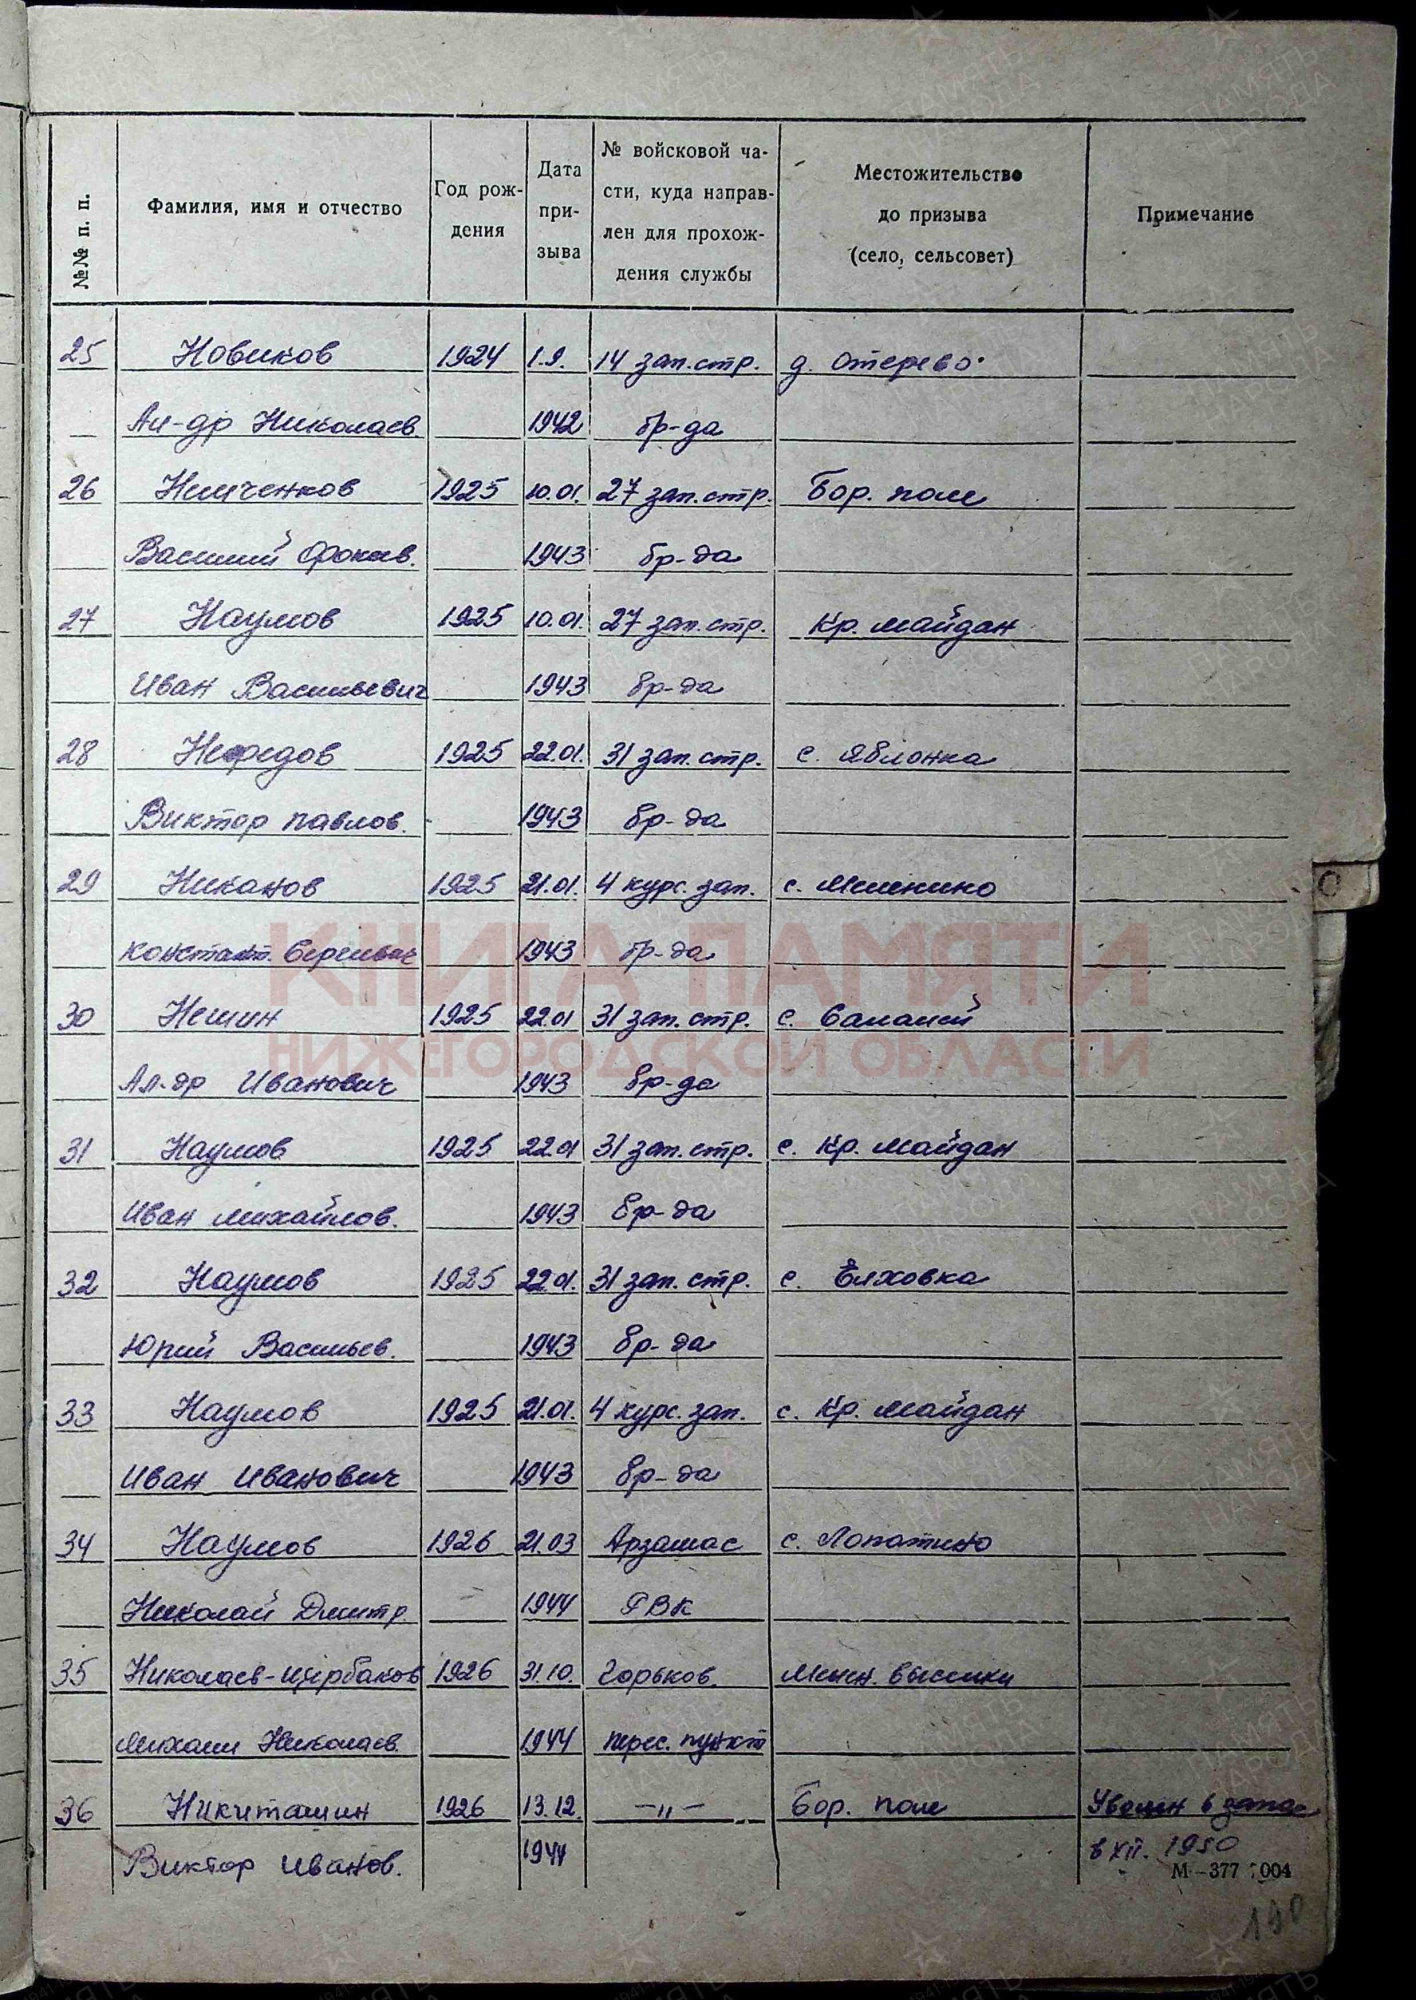 №№ п. п.
Фамилия, имя и отчество
Год рож-
дения
Дата
при-
зыва
№ войсковой ча-
сти, куда направ-
лен для прохож-
дения службы
Местожительство
до призыва
(село, сельсовет)
Примечание
25 Новиков 1924 1.9. 14 зап. стр. д. Отерево
Ал-др Николаев. 1942 бр-да
26 Немченков 1925 10.01. 27 зап. стр. Бор. поле
Василий Фокеев. 1943 бр-да
27 Наумов 1925 10.01. 27 зап. стр. Кр. майдан
Иван Васильевич 1943 бр-да
28 Нефедов 1925 22.01. 31 зап. стр. с. Яблонка
Виктор павлов. 1943 бр-да
29 Никанов 1925 21.01. 4 курс. зап. с.
Констант. Сергеевич 1943 бр-да
30 Нешин 1925 22.01 31 зап. стр. с. Саламей
Ал-др Иванович 1943 бр-да
31 Наумов 1925 22.01 31 зап. стр. с. Кр. майдан
Иван михайлов. 1943 бр-да
32 Наумов 1925 22.01. 31 зап. стр. с. Елховка
Юрий Васильев. 1943 бр-да
33 Наумов 1925 21.01. 4 курс. зап. с. Кр. майдан
Иван Иванович 1943 бр-да
34 Наумов 1926 21.03 Арзамас с. Лопатино
Николай Дмитр. 1944 РВК
35 Николаев-щербаков 1926 31.10. Горьков. выселки
михаил Николаев. 1944 перес. пункт
36 Никиташин 1926 13.12. —„— Бор. поле Уволен в запас
Виктор Иванов. 1944 в XII. 1950
М-377 1004
190
КНИГА ПАМЯТИ
НИЖЕГОРОДСКОЙ ОБЛАСТИ